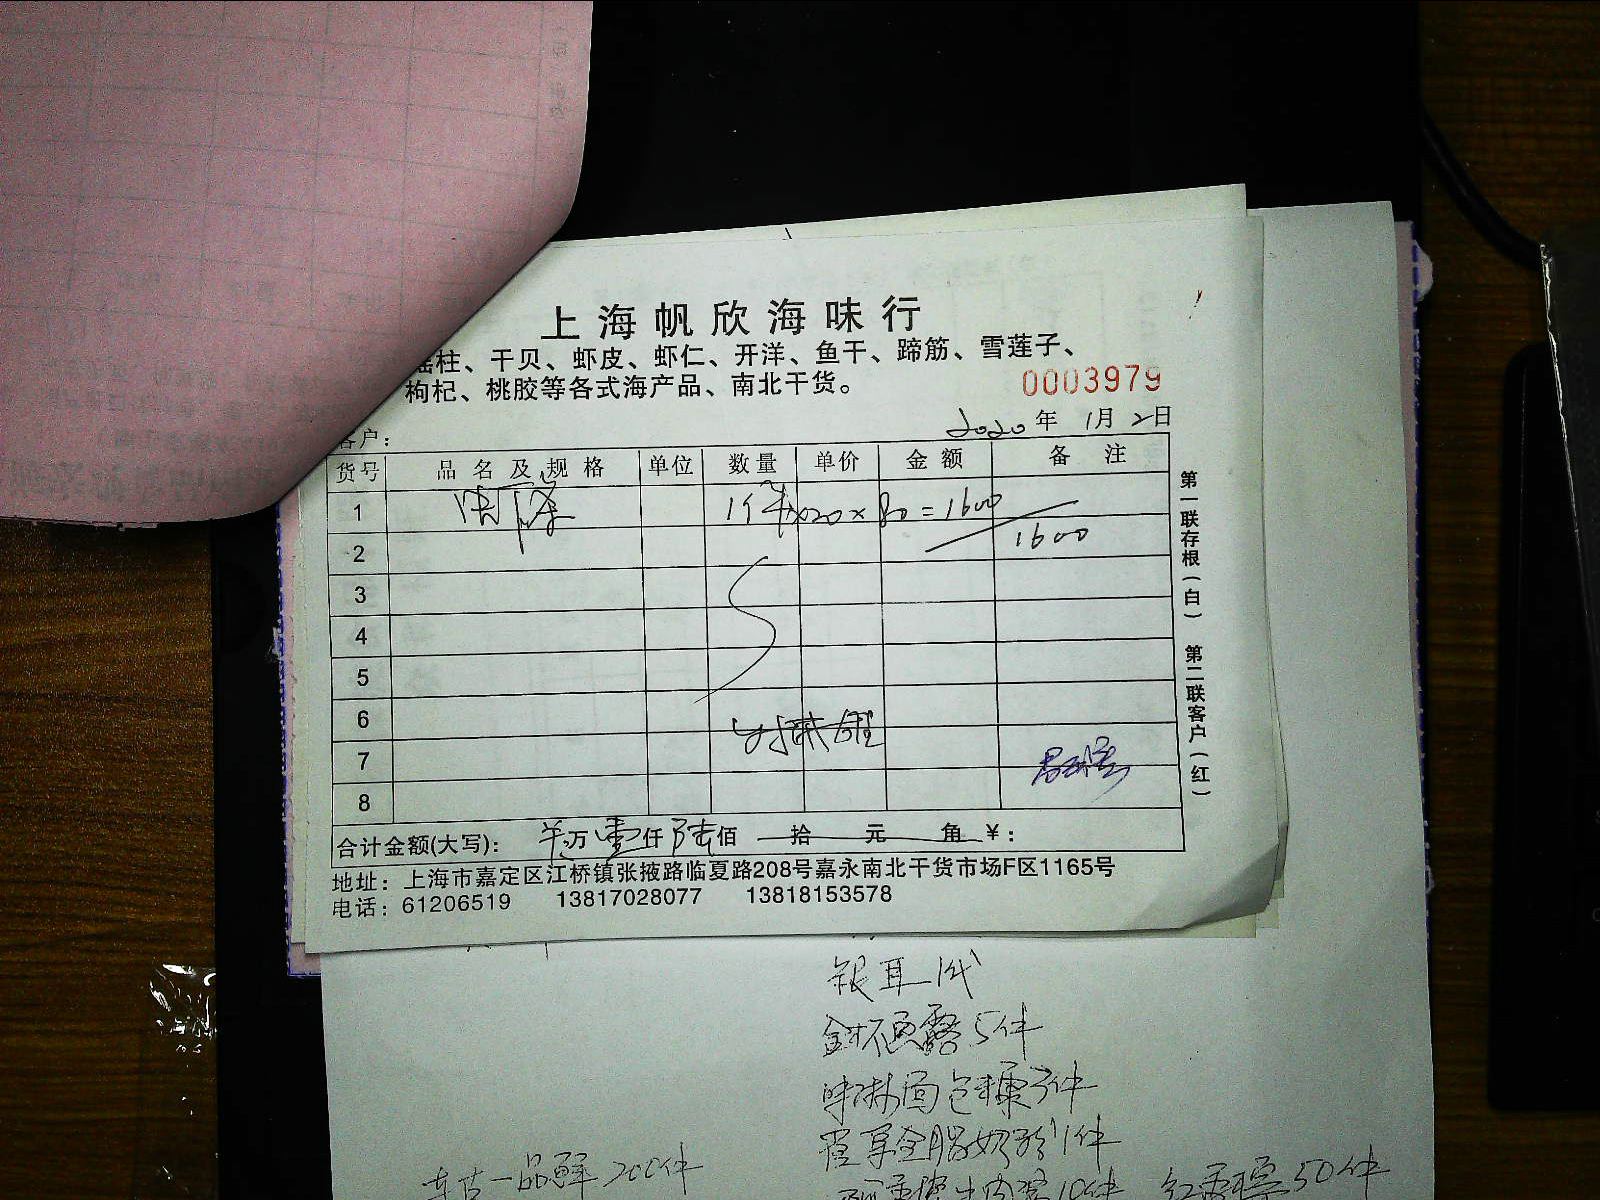 上海帆欣海味行
柱、干贝、虾皮、虾仁、开洋、鱼干、蹄筋、雪莲子、
枸杞、桃胶等各式海产品、南北干货。
0003979
2020年 1月 2日
客户：
货号 品名及规格 单位 数量 单价 金额 备注
1 1件 x020 x 80 = 1600
2 1600
3
4
5
6
7
8
合计金额(大写)： 万壹仟陆佰 拾 元 角 ￥：
地址：上海市嘉定区江桥镇张掖路临夏路208号嘉永南北干货市场F区1165号
电话：61206519 13817028077 13818153578
第一联存根(白) 第二联客户(红)
银耳1代
5件
味淋面包糠3件
全脂奶粉1件
一品鲜200件
10件
50件